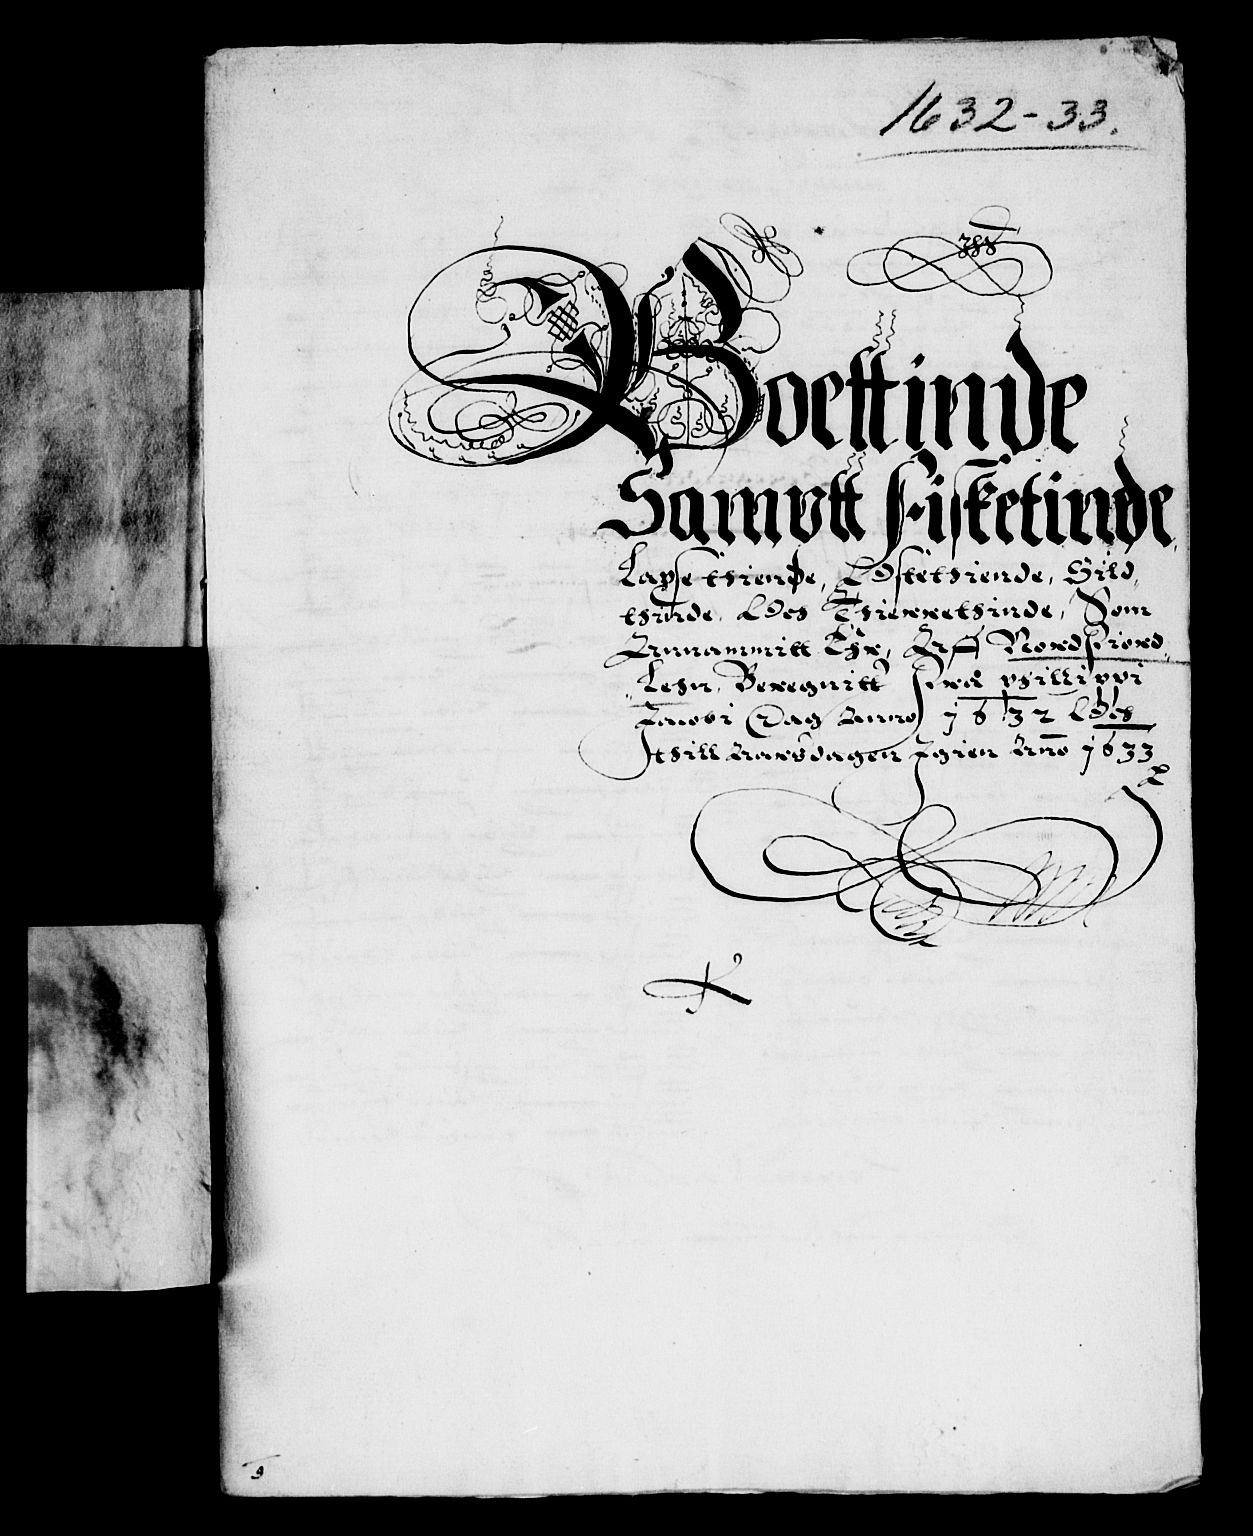 1632-33.
Koettinde
Sampt Fisketinde
Laxsethiende, Osthethiende, Sild
thiinde, Och Thierrethiinde, Som
Annammitt Ehr, Aff Nordfiord
Lehn, Beregnitt fra philippi
Jacobi Dag Anno 1632 Och
thill Aarsdagen Igien Ano 1633
9